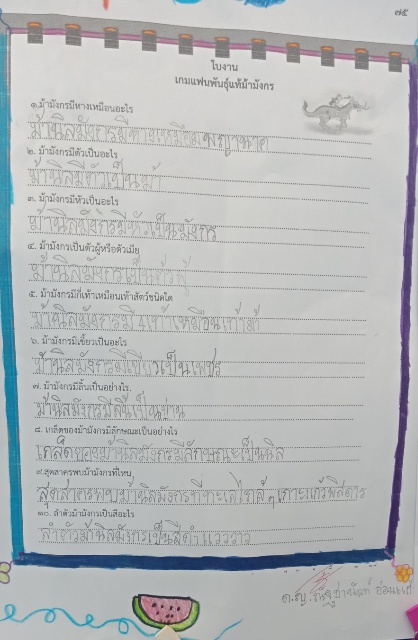 ๗๕
ใบงาน
เกมแฟนพันธุ์แท้ม้ามังกร
๑.ม้ามังกรมีหางเหมือนอะไร
ม้านิลมังกรมีหางเหมือนพญานาค
๒. ม้ามังกรมีตัวเป็นอะไร
ม้านิลมีตัวเป็นม้า
๓. ม้ามังกรมีหัวเป็นอะไร
ม้านิลมังกรมีหัวเป็นมังกร
๔. ม้ามังกรเป็นตัวผู้หรือตัวเมีย
ม้านิลมังกรเป็นตัวผู้
๕. ม้ามังกรมีกี่เท้าเหมือนเท้าสัตว์ชนิดใด
ม้านิลมังกรมี 4 เท้าเหมือนเท้าม้า
๖. ม้ามังกรมีเขี้ยวเป็นอะไร
ม้านิลมังกรมีเขี้ยวเป็นเพชร
๗. ม้ามังกรมีลิ้นเป็นอย่างไร
ม้านิลมังกรมีลิ้นเป็นปาน
๘. เกล็ดของม้ามังกรมีลักษณะเป็นอย่างไร
เกล็ดของม้านิลมังกรมีลักษณะเป็นนิล
๙.สุดสาครพบม้ามังกรที่ไหน
สุดสาครพบม้านิลมังกรที่ทะเลใกล้ๆเกาะแก้วพิสดาร
๑๐. ลำตัวม้ามังกรเป็นสีอะไร
ลำตัวม้านิลมังกรเป็นสีดำแวววาว
ด.ญ.